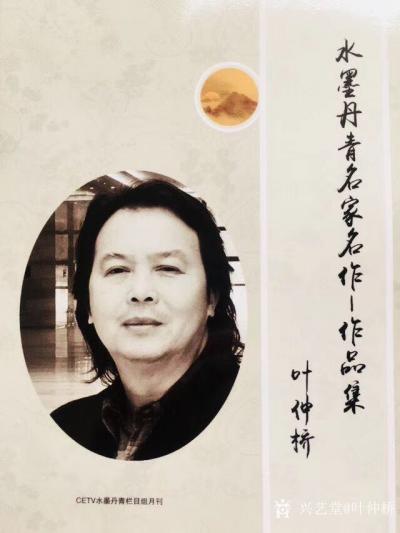 水墨丹青名家名作-作品集
叶仲桥
CETV水墨丹青栏目组月刊
兴艺堂@叶仲桥